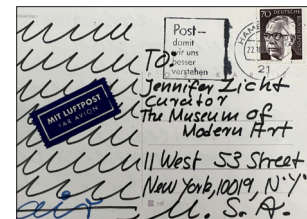 Post—
damit
wir uns
besser
verstehen
70 DEUTSCHE
HAM
22.10
21
MIT LUFTPOST
PAR AVION
To:
Jennifer Licht
Curator
The Museum of
Modern Art
11 West 53 Street
New York, 10019, N.Y.
U. S. A.
air